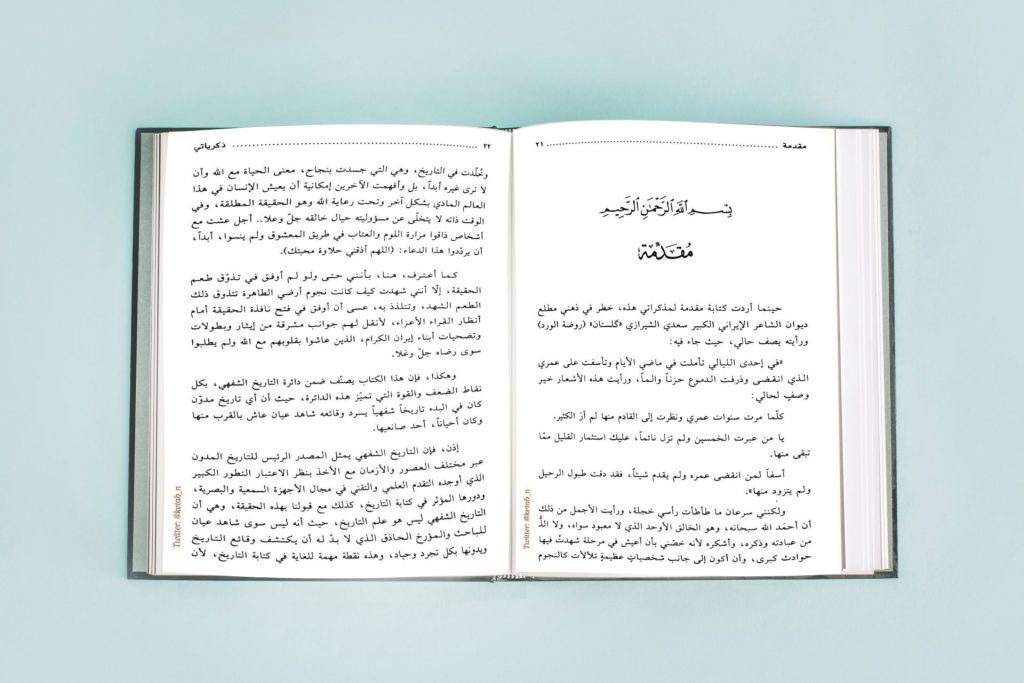 مقدمة ٢١
بِسْمِ اللَّهِ الرَّحْمَٰنِ الرَّحِيمِ
مُقَدِّمَة
حينما أردت كتابة مقدمة لمذكراتي هذه، خطر في ذهني مطلع
ديوان الشاعر الإيراني الكبير سعدي الشيرازي «گلستان» (روضة الورد)
ورأيته يصف حالي، حيث جاء فيه:
«في إحدى الليالي تأملت في ماضي الأيام وتأسفت على عمري
الذي انقضى وذرفت الدموع حزناً وألماً، ورأيت هذه الأشعار خير
وصفٍ لحالي:
كلّما مرت سنوات عمري ونظرت إلى القادم منها لم أرَ الكثير.
يا من عبرت الخمسين ولم تزل نائماً، عليك استثمار القليل ممّا
تبقى منها.
أسفاً لمن انقضى عمره ولم يقدم شيئاً، فقد دقت طبول الرحيل
ولم يتزود منها».
ولكنني سرعان ما طأطأت رأسي خجلة، ورأيت الأجمل من ذلك
أن أحمَد الله سبحانه، وهو الخالق الأوحد الذي لا معبود سواه، ولا ألذُّ
من عبادته وذكره، وأشكره لأنه خصّني بأن أعيش في مرحلة شهدتُ فيها
حوادث كبرى، وأن أكون إلى جانب شخصياتٍ عظيمةٍ تلألأت كالنجوم
Twitter: @ketab_n
٢٢ ذكرياتي
وخُلّدت في التاريخ، وهي التي جسدت بنجاح، معنى الحياة مع الله وأن
لا ترى غيره أبداً، بل وأفهمت الآخرين إمكانية أن يعيش الإنسان في هذا
العالم المادي بشكل آخر وتحت رعاية الله وهو الحقيقة المطلقة، وفي
الوقت ذاته لا يتخلّى عن مسؤوليته حيال خالقه جلّ وعلا.. أجل عشت مع
أشخاص ذاقوا مرارة اللوم والعتاب في طريق المعشوق ولم ينسوا، أبداً،
أن يردّدوا هذا الدعاء: (اللهم أذقني حلاوة محبتك).
كما أعترف، هنا، بأنني حتى ولو لم أوفق في تذوّق طعم
الحقيقة، إلّا أنني شهدت كيف كانت نجوم أرضي الطاهرة تتذوق ذلك
الطعم الشهد، وتتلذذ به، عسى أن أوفق في فتح نافذة الحقيقة أمام
أنظار القراء الأعزاء، لأنقل لهم جوانب مشرقة من إيثار وبطولات
وتضحيات أبناء إيران الكرام، الذين عاشوا بقلوبهم مع الله ولم يطلبوا
سوى رضاه جلّ وعَلا.
وهكذا، فإن هذا الكتاب يصنّف ضمن دائرة التاريخ الشفهي، بكل
نقاط الضعف والقوة التي تميّز هذه الدائرة، حيث أن أي تاريخ مدوّن
كان في البدء تاريخاً شفهياً يسرد وقائعه شاهد عيان عاش بالقرب منها
وكان أحياناً، أحد صانعيها.
إذن، فإن التاريخ الشفهي يمثل المصدر الرئيس للتاريخ المدون
عبر مختلف العصور والأزمان مع الأخذ بنظر الاعتبار التطور الكبير
الذي أوجده التقدم العلمي والتقني في مجال الأجهزة السمعية والبصرية،
ودورها المؤثر في كتابة التاريخ، كذلك مع قبولنا بهذه الحقيقة، وهي أن
التاريخ الشفهي ليس هو علم التاريخ، حيث أنه ليس سوى شاهد عيان
للباحث والمؤرخ الحاذق الذي لا بدّ له أن يكتشف وقائع التاريخ
ويدونها بكل تجرد وحياد، وهذه نقطة مهمة للغاية في كتابة التاريخ، لأن
Twitter: @ketab_n